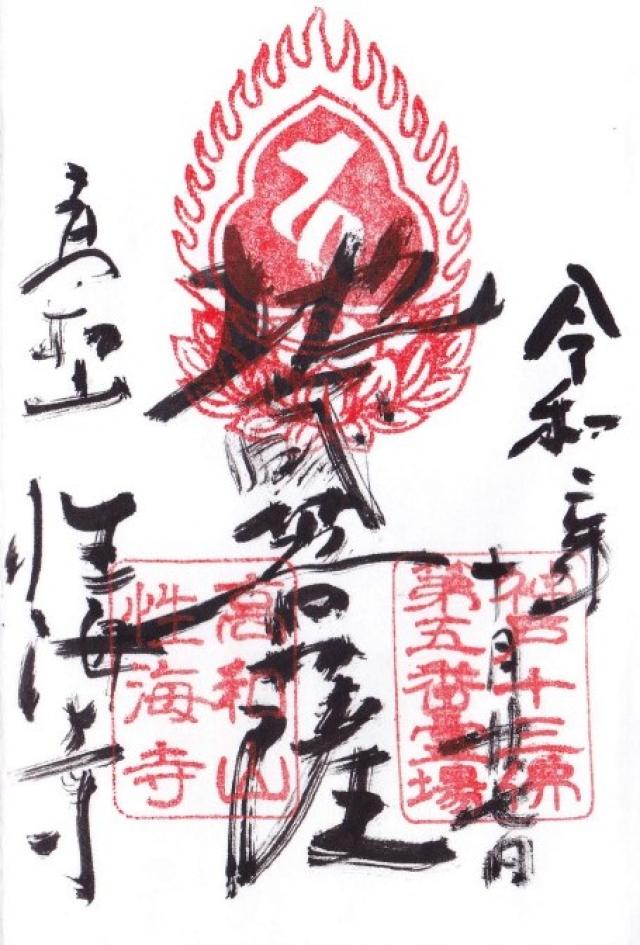 令和二年
十月廿七日
神戸十三佛
第五番霊場
地蔵菩薩
高和山
性海寺
高和山
性海寺